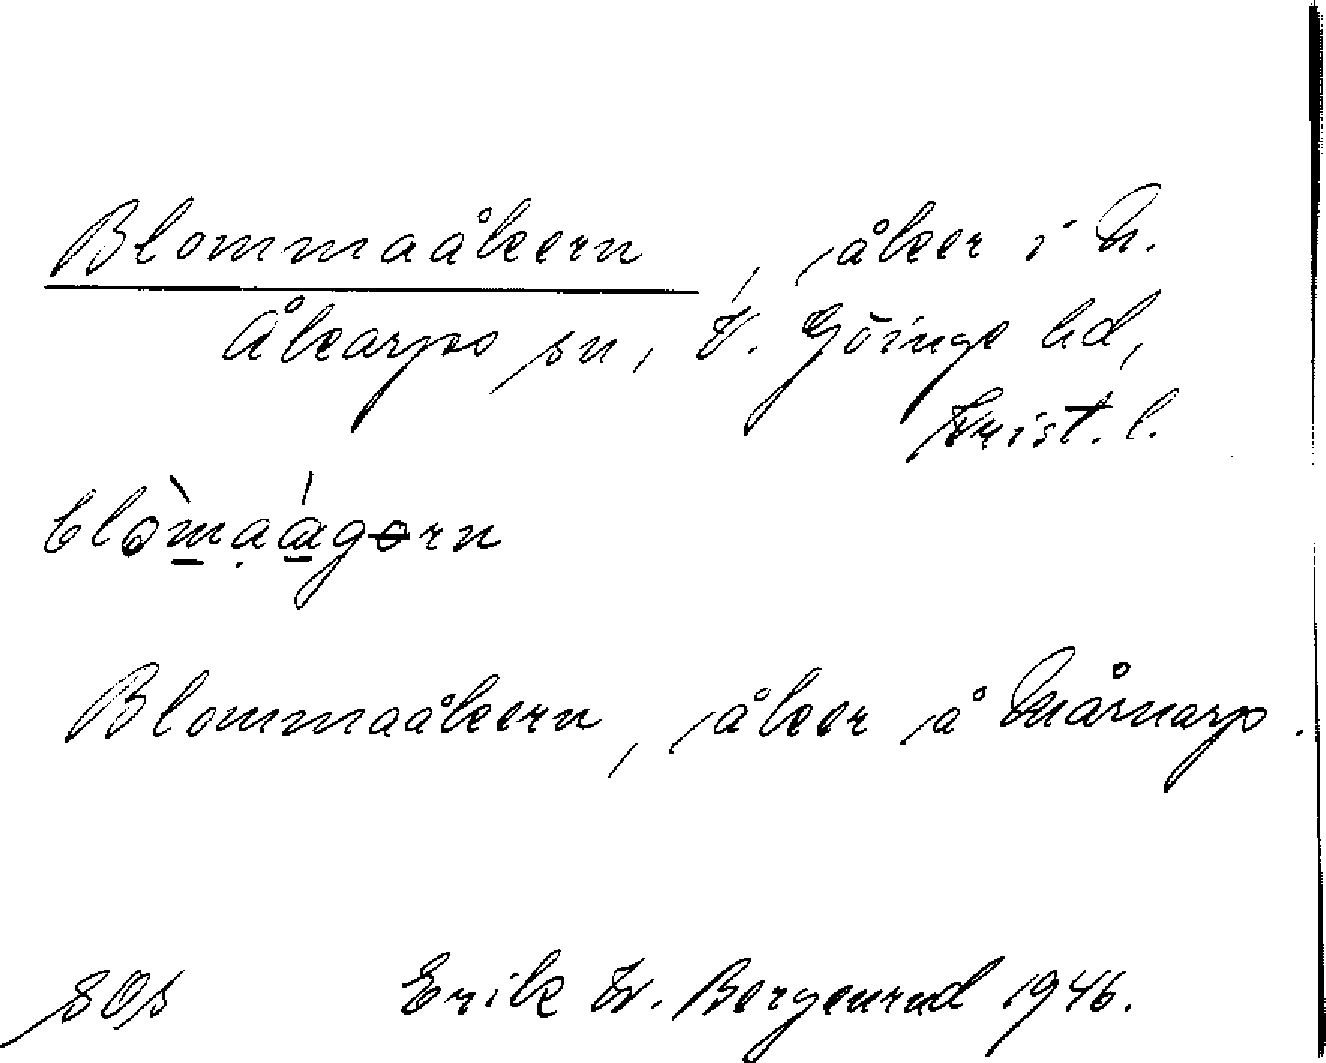 Blommaåkern, åker i N.
Åkarps sn, V. Göinge hd,
Krist. l.
blòmaágørn
Blommaåkern, åker å Mårnarp.
SOS Erik W. Bergenrud 1946.